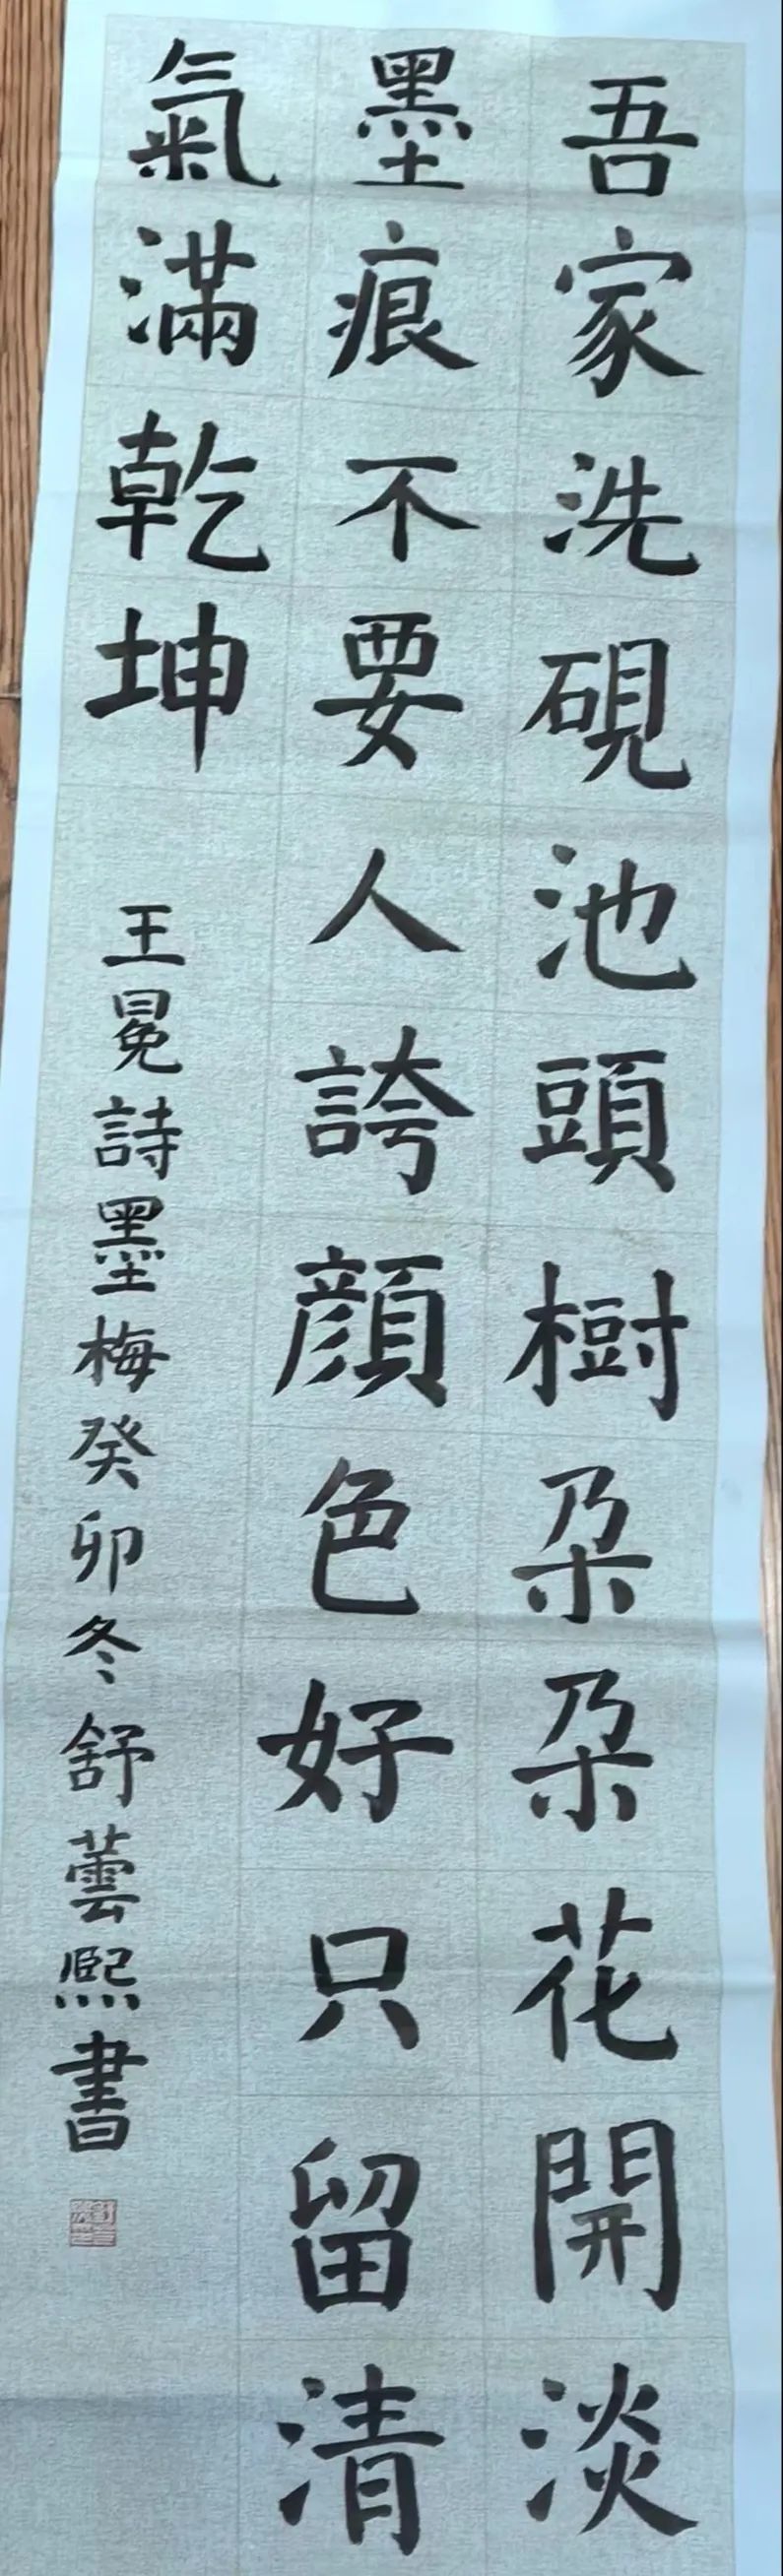 吾家洗硯池頭樹朶朶花開淡
墨痕不要人誇顔色好只留清
氣滿乾坤
王冕詩墨梅癸卯冬舒蕓熙書